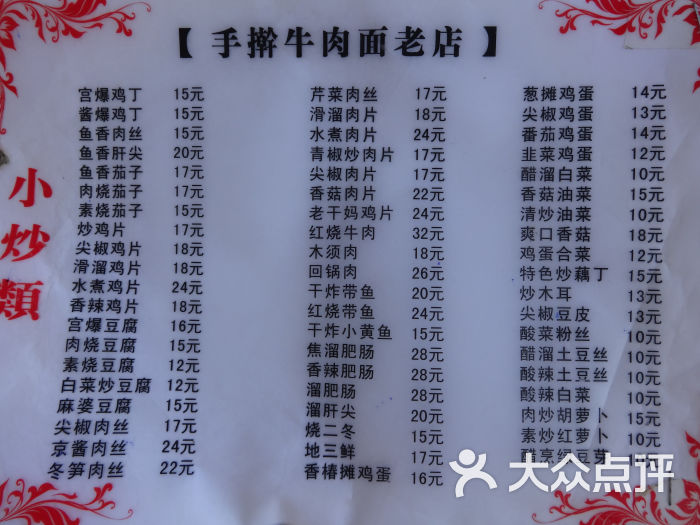 【 手擀牛肉面老店 】
小炒類
宫爆鸡丁 15元
酱爆鸡丁 15元
鱼香肉丝 15元
鱼香肝尖 20元
鱼香茄子 17元
肉烧茄子 17元
素烧茄子 15元
炒鸡片 17元
尖椒鸡片 18元
滑溜鸡片 18元
水煮鸡片 24元
香辣鸡片 18元
宫爆豆腐 16元
肉烧豆腐 15元
素烧豆腐 12元
白菜炒豆腐 12元
麻婆豆腐 15元
尖椒肉丝 17元
京酱肉丝 24元
冬笋肉丝 22元
芹菜肉丝 17元
滑溜肉片 18元
水煮肉片 24元
青椒炒肉片 17元
尖椒肉片 17元
香菇肉片 22元
老干妈鸡片 24元
红烧牛肉 32元
木须肉 18元
回锅肉 26元
干炸带鱼 20元
红烧带鱼 24元
干炸小黄鱼 15元
焦溜肥肠 28元
香辣肥肠 28元
溜肥肠 28元
溜肝尖 20元
烧二冬 15元
地三鲜 17元
香椿摊鸡蛋 16元
葱摊鸡蛋 14元
尖椒鸡蛋 13元
番茄鸡蛋 14元
韭菜鸡蛋 12元
醋溜白菜 10元
香菇油菜 15元
清炒油菜 10元
爽口香菇 18元
鸡蛋合菜 12元
特色炒藕丁 15元
炒木耳 13元
尖椒豆皮 13元
酸菜粉丝 10元
醋溜土豆丝 10元
酸辣土豆丝 10元
酸辣白菜 10元
肉炒胡萝卜 15元
素炒红萝卜 10元
醋烹绿豆芽
大众点评